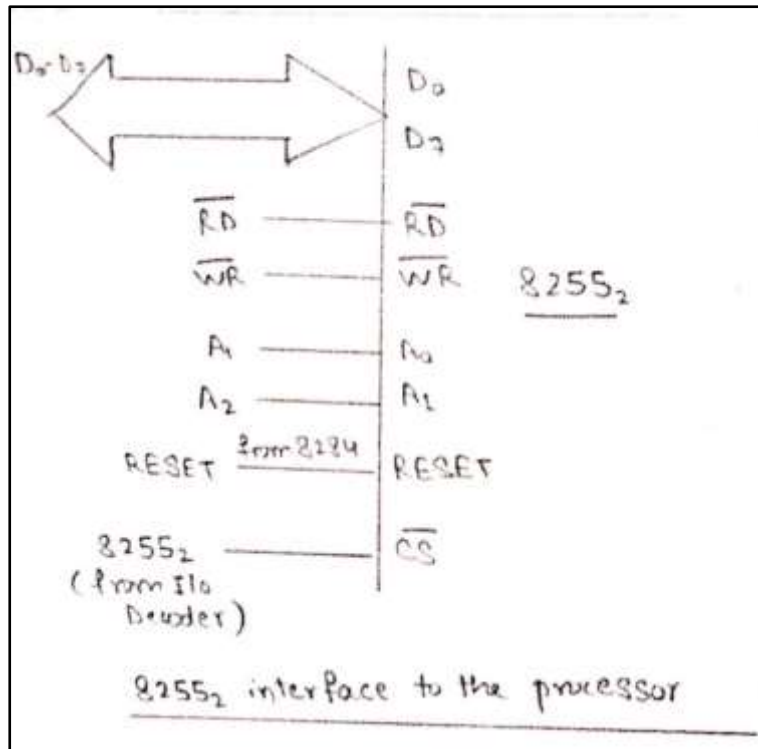 D₀-D₇
D₀
D₇
R̅D̅ R̅D̅
W̅R̅ W̅R̅
8255₂
A₁ A₀
A₂ A₁
RESET from 8284 RESET
8255₂ C̅S̅
(from I/O
Decoder)
8255₂ interface to the processor